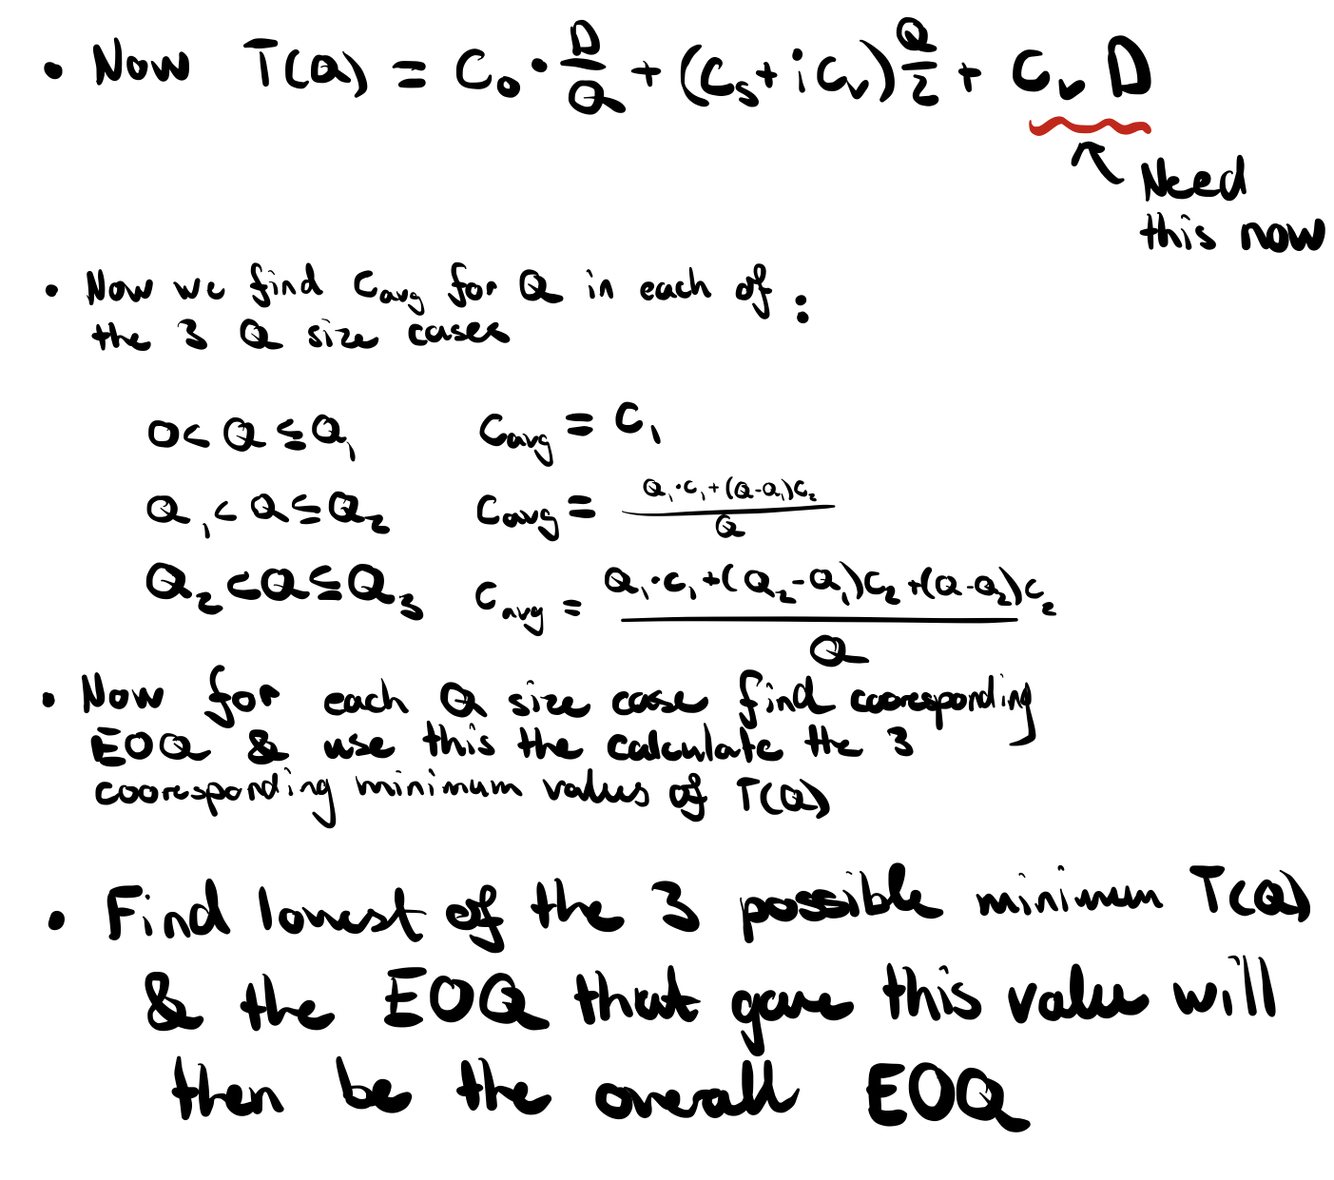 • Now T(Q) = C₀ · D/Q + (Cₛ + i Cᵥ) Q/2 + Cᵥ D
Need
this now
• Now we find Cavg for Q in each of :
the 3 Q size cases
0 < Q ≤ Q₁ Cavg = C₁
Q₁ < Q ≤ Q₂ Cavg = (Q₁·C₁ + (Q-Q₁)C₂)/Q
Q₂ < Q ≤ Q₃ Cavg = (Q₁·C₁ + (Q₂-Q₁)C₂ + (Q-Q₂)C₂)/Q
• Now for each Q size case find cooresponding
EOQ & use this the calculate the 3
cooresponding minimum values of T(Q)
• Find lowest of the 3 possible minimum T(Q)
& the EOQ that gave this value will
then be the overall EOQ